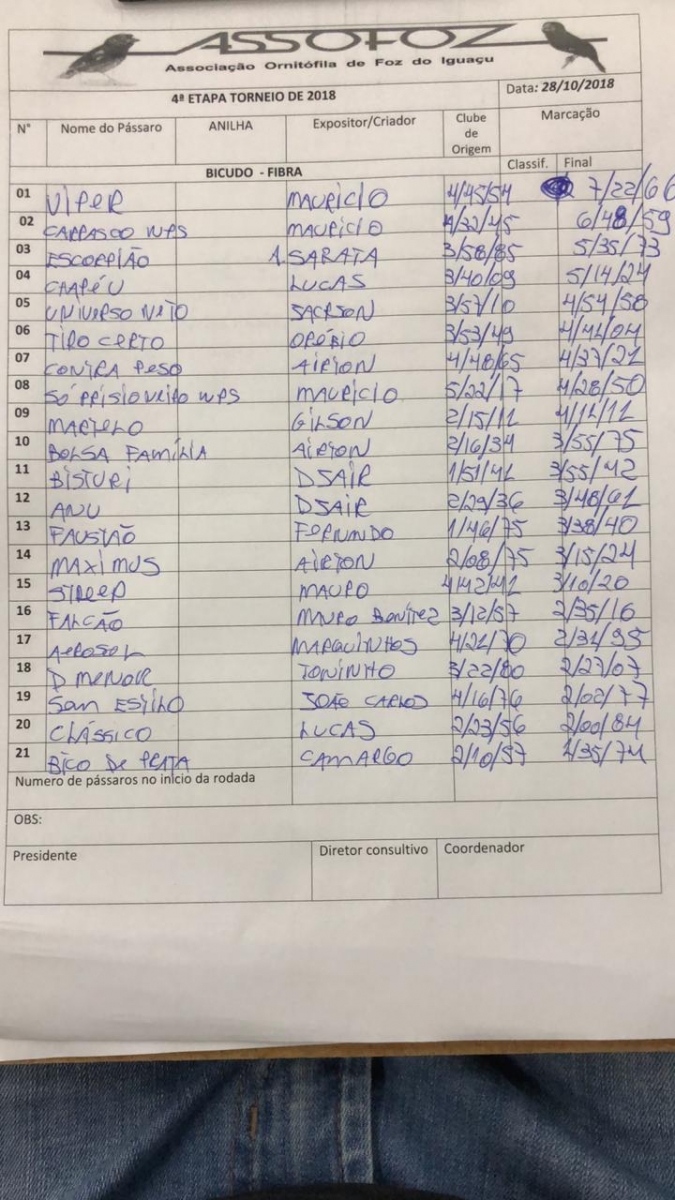 ASSOFOZ
Associação Ornitófila de Foz do Iguaçu
4ª ETAPA TORNEIO DE 2018 Data: 28/10/2018
N° Nome do Pássaro ANILHA Expositor/Criador Clube de Origem Marcação
BICUDO - FIBRA Classif. Final
01 VIPER MAURICIO 4/45/54 7/22/66
02 CARRASCO WPS MAURICIO 4/32/45 6/48/59
03 ESCORPIÃO A.SARATA 3/58/85 5/35/73
04 CHAPÉU LUCAS 3/40/09 5/14/24
05 UNIVERSO NATO JACKSON 3/57/10 4/54/58
06 TIRO CERTO 3/53/49 4/44/04
07 CONTRA PESO AIRTON 4/48/65 4/37/21
08 SÓ PRISIONEIRO WPS MAURICIO 5/22/17 4/28/50
09 MARTELO GILSON 2/15/11 4/11/11
10 BOLSA FAMÍLIA AIRTON 2/16/34 3/55/75
11 BISTURI DJAIR 1/51/41 3/55/42
12 ANU DJAIR 2/29/36 3/48/61
13 FAUSTÃO 1/46/75 3/38/40
14 MAXIMUS AIRTON 2/08/75 3/15/24
15 MAURO 4/42/41 3/10/20
16 FALCÃO MAURO BENITEZ 3/12/57 2/35/16
17 AEROSOL MARQUINHOS 4/21/70 2/31/95
18 D MENOR TONINHO 3/22/80 2/27/07
19 SAM ESTILO JOÃO CARLOS 4/16/76 2/02/77
20 CLÁSSICO LUCAS 2/23/56 2/00/84
21 BICO DE PRATA CAMARGO 2/10/57 1/35/74
Numero de pássaros no início da rodada
OBS:
Presidente Diretor consultivo Coordenador